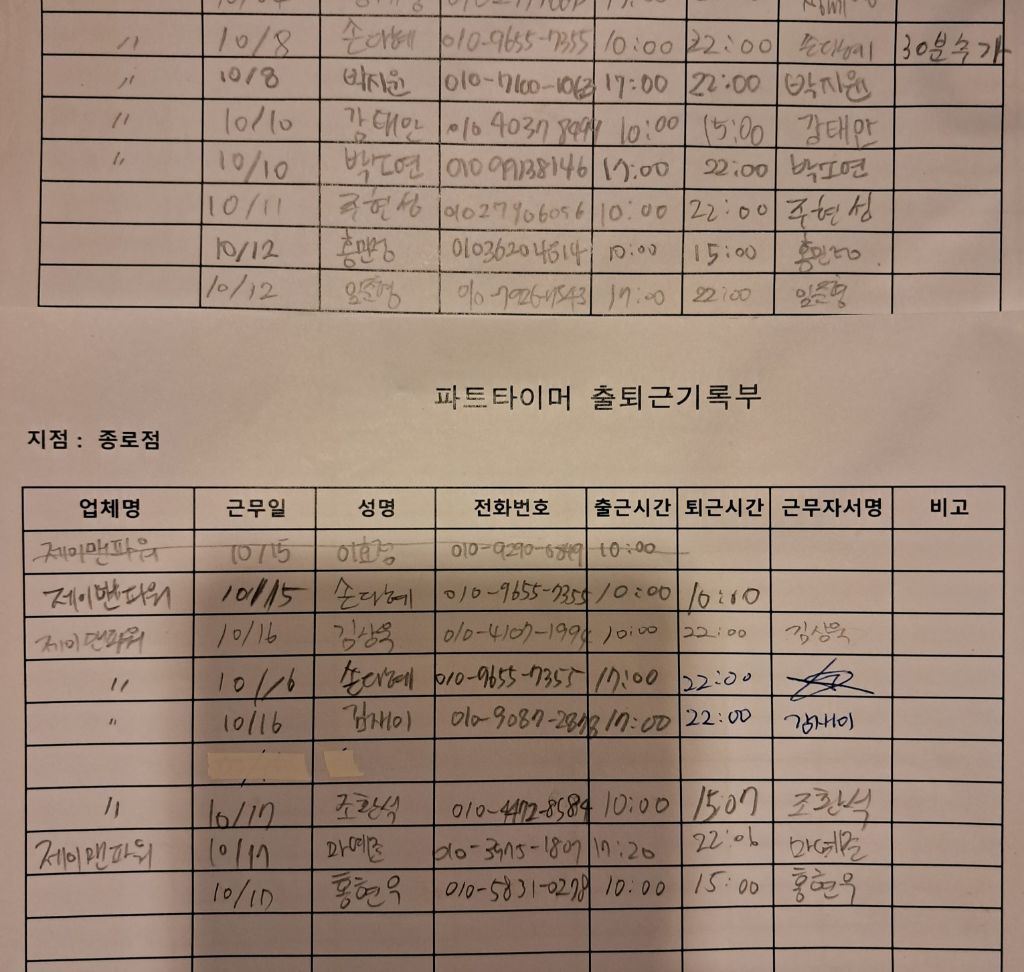 〃 10/8 손다혜 010-9655-7355 10:00 22:00 손다혜 30분추가
〃 10/8 박지원 010-7100-1063 17:00 22:00 박지원
〃 10/10 강태안 010 4037 10:00 15:00 강태안
〃 10/10 박도연 010 99138146 17:00 22:00 박도연
10/11 주현성 01027906056 10:00 22:00 주현성
10/12 홍민정 01036204614 10:00 15:00 홍민정
10/12 임준형 010-7926-7543 17:00 22:00 임준형
파트타이머 출퇴근기록부
지점 : 종로점
업체명 근무일 성명 전화번호 출근시간 퇴근시간 근무자서명 비고
제이맨파워 10/15 이효정 10:00
제이맨파워 10/15 손다혜 010-9655-7355 10:00
제이맨파워 10/16 김상욱 010-4107-1994 10:00 22:00 김상욱
〃 10/16 손다혜 010-9655-7355 17:00 22:00
〃 10/16 김재이 010-9087-2873 17:00 22:00 김재이
〃 10/17 조환석 010-4472-8584 10:00 15:07 조환석
제이맨파워 10/17 마예준 010-3475-1807 17:20 22:06 마예준
10/17 홍현욱 010-5831-0278 10:00 15:00 홍현욱